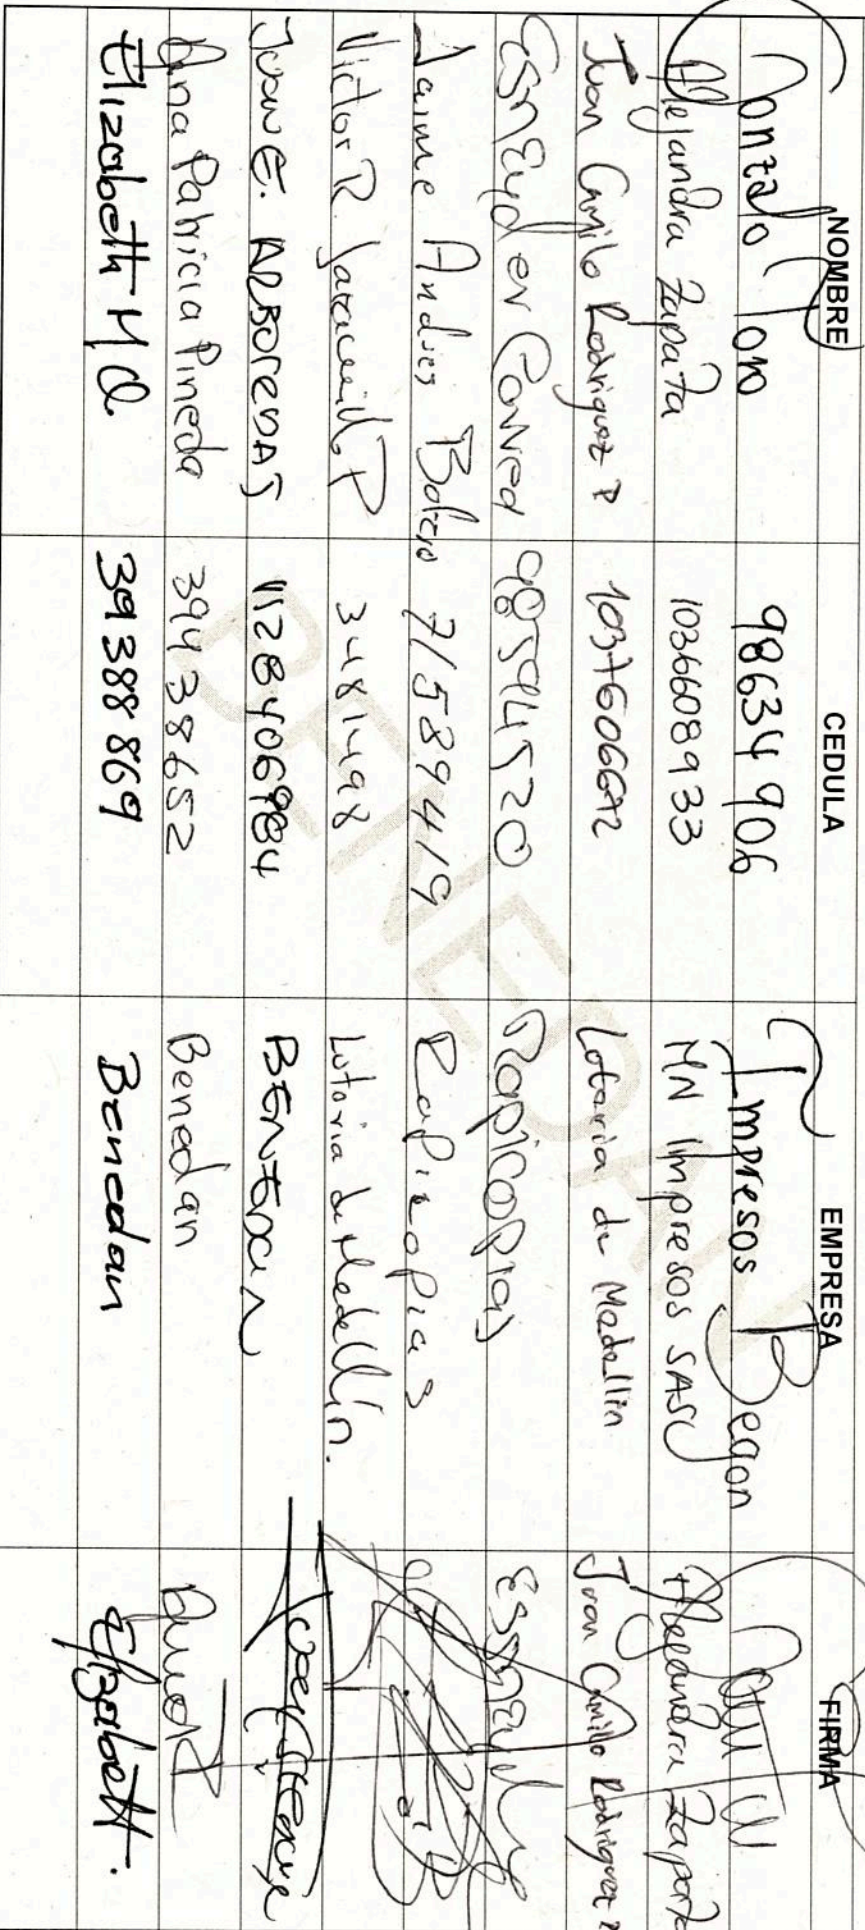 NOMBRE CEDULA EMPRESA FIRMA
Gonzalo Toro 98634906 Impresos Begon
Alejandra Zapata 1036608933 MN Impresos SAS Alejandra Zapata
Juan Camilo Rodriguez P 1037606672 Loteria de Medellin Juan Camilo Rodriguez P
Esneyder Correa 98594520 Rapicopias Esneyder
Jaime Andres Botero 71589419 Rapicopias
Victor R. Jaramillo P 3481498 Loteria de Medellín.
Juan E. 1128406984 Benedan
Ana Patricia Pineda 39438652 Benedan
Elizabeth 39388869 Benedan Elizabeth.
BENEDAN